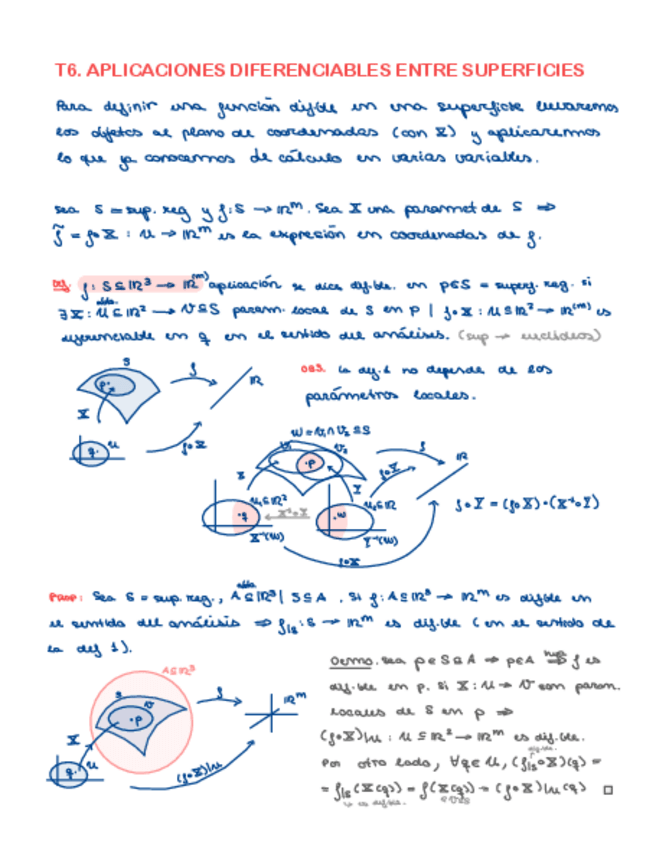 T6. APLICACIONES DIFERENCIABLES ENTRE SUPERFICIES
Para definir una función difble en una superficie llevaremos
los objetos al plano de coordenadas (con X) y aplicaremos
lo que ya conocemos de cálculo en varias variables.
Sea S = sup. reg y f: S → ℝᵐ. Sea X una paramet de S ⇒
f̃ = f∘X : U → ℝᵐ es la expresión en coordenadas de f.
Def. f: S ⊆ ℝ³ → ℝ⁽ᵐ⁾ aplicación se dice dif.ble. en p∈S = superf. reg. si
abto.
∃X: U ⊆ ℝ² → V ⊆ S param. local de S en p | f∘X : U ⊆ ℝ² → ℝ⁽ᵐ⁾ es
diferenciable en q en el sentido del análisis. (sup → euclídeos)
S
f
ℝ
p
X
q
U
f∘X
OBS. La def. 1 no depende de los
parámetros locales.
W = V₁ ∩ V₂ ⊆ S
V₁
V₂
f
ℝ
p
X
Y
f∘Y
U₁ ⊆ ℝ²
U₂ ⊆ ℝ
q
X⁻¹∘Y
w
X⁻¹(W)
Y⁻¹(W)
f∘X
f∘Y = (f∘X)∘(X⁻¹∘Y)
abto
PROP: Sea S = sup. reg., A ⊆ ℝ³ | S ⊆ A. Si f: A ⊆ ℝ³ → ℝᵐ es difble en
el sentido del análisis ⇒ f|ₛ : S → ℝᵐ es dif.ble (en el sentido de
la def 1).
A ⊆ ℝ³
S
V
p
f
ℝᵐ
X
q
U
(f∘X)|u
Demo. Sea p ∈ S ⊆ A ⇒ p ∈ A ⇒ f es
dif.ble en p. Si X: U → V son param.
locales de S en p ⇒
(f∘X)|u : U ⊆ ℝ² → ℝᵐ es dif.ble.
Por otro lado, ∀q ∈ U, (f|ₛ∘X)(q) =
= f|ₛ(X(q)) = f(X(q)) = (f∘X)|u(q) □
∈V⊆S